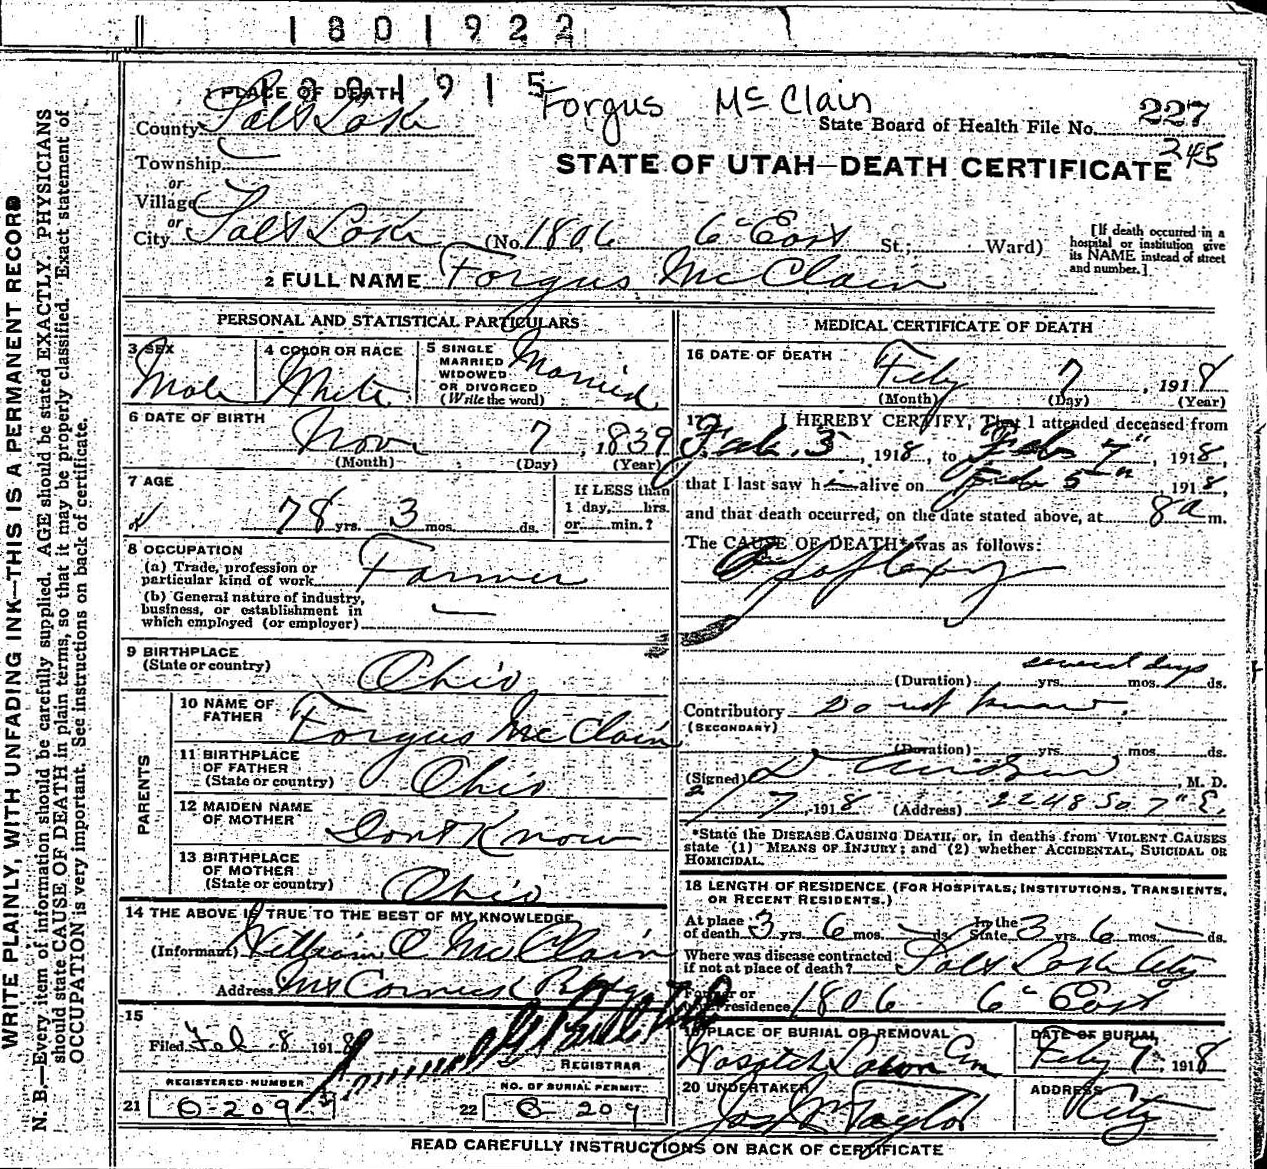 1801922
1801915
Forgus McClain
227
245
1 PLACE OF DEATH
State Board of Health File No.
County Salt Lake
STATE OF UTAH—DEATH CERTIFICATE
Township
or
Village
or
City Salt Lake (No. 1806 6" East St.; Ward)
[If death occurred in a hospital or institution give its NAME instead of street and number.]
2 FULL NAME Forgus McClain
WRITE PLAINLY, WITH UNFADING INK—THIS IS A PERMANENT RECORD
N. B.—Every item of information should be carefully supplied. AGE should be stated EXACTLY. PHYSICIANS
should state CAUSE OF DEATH in plain terms, so that it may be properly classified. Exact statement of
OCCUPATION is very important. See instructions on back of certificate.
PERSONAL AND STATISTICAL PARTICULARS
3 SEX Male
4 COLOR OR RACE White
5 SINGLE
MARRIED
WIDOWED
OR DIVORCED
(Write the word) Married
6 DATE OF BIRTH
Nov 7, 1839
(Month) (Day) (Year)
7 AGE
78 yrs. 3 mos. ds.
If LESS than
1 day, hrs.
or min.?
8 OCCUPATION
(a) Trade, profession or
particular kind of work Farmer
(b) General nature of industry,
business, or establishment in
which employed (or employer)
9 BIRTHPLACE
(State or country) Ohio
PARENTS
10 NAME OF
FATHER Forgus McClain
11 BIRTHPLACE
OF FATHER
(State or country) Ohio
12 MAIDEN NAME
OF MOTHER Dont Know
13 BIRTHPLACE
OF MOTHER
(State or country) Ohio
14 THE ABOVE IS TRUE TO THE BEST OF MY KNOWLEDGE
(Informant) William O. McClain
Address McCornick Bldg
15
Filed Feb 8 1918
REGISTRAR
REGISTERED NUMBER
21 6-209
NO. OF BURIAL PERMIT
22 6-209
MEDICAL CERTIFICATE OF DEATH
16 DATE OF DEATH
Feby 7, 1918
(Month) (Day) (Year)
17 I HEREBY CERTIFY, That I attended deceased from
Feb. 3, 1918, to Feb 7", 1918,
that I last saw him alive on Feb 5th, 1918,
and that death occurred, on the date stated above, at 8 a m.
The CAUSE OF DEATH* was as follows:
Apoplexy
several days
(Duration) yrs. mos. ds.
Contributory Do not know.
(SECONDARY)
(Duration) yrs. mos. ds.
(Signed) M. D.
2/7, 1918 (Address) 2248 So. 7" E.
*State the DISEASE CAUSING DEATH, or, in deaths from VIOLENT CAUSES
state (1) MEANS OF INJURY; and (2) whether ACCIDENTAL, SUICIDAL OR
HOMICIDAL.
18 LENGTH OF RESIDENCE (FOR HOSPITALS, INSTITUTIONS, TRANSIENTS,
OR RECENT RESIDENTS.)
At place
of death 3 yrs 6 mos. ds. In the
State 3 yrs 6 mos. ds.
Where was disease contracted
if not at place of death? Salt Lake City
Former or
residence 1806 6" East
19 PLACE OF BURIAL OR REMOVAL
Wasatch Lawn Cem
DATE OF BURIAL
Feby 7, 1918
20 UNDERTAKER
Jos Wm Taylor
ADDRESS
City
READ CAREFULLY INSTRUCTIONS ON BACK OF CERTIFICATE